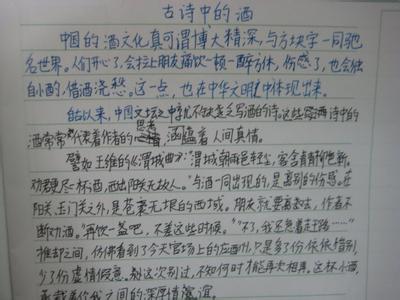 古诗中的酒
中国的酒文化真可谓博大精深,与方块字一同驰
名世界。人们开心了,会拉上朋友痛饮一顿一醉方休,伤感了,也会独
自小酌,借酒浇愁。这一点,也在中华文明史中体现出来。
自古以来,中国文坛之中就不缺乏写酒的诗。这些诗中的
酒常常代表着作者的思考,涵蕴着人间真情。
譬如王维的《渭城曲》:"渭城朝雨浥轻尘,客舍青青柳色新。
劝君更尽一杯酒,西出阳关无故人。"与酒一同出现的,是离别的伤感。在
阳关、玉门关之外,是苍寂无垠的西域。朋友就要离去,作者不
断劝酒。"再饮一盏吧,不差这些时候。""不了,我还急着走路……"
推却之间,仿佛看到了今天官场上的应酬。只是多了份依依惜别,
少了份虚情假意。别这次别过,不知何时才能再次相再。这杯小酒,
承载着你我之间的深厚情谊